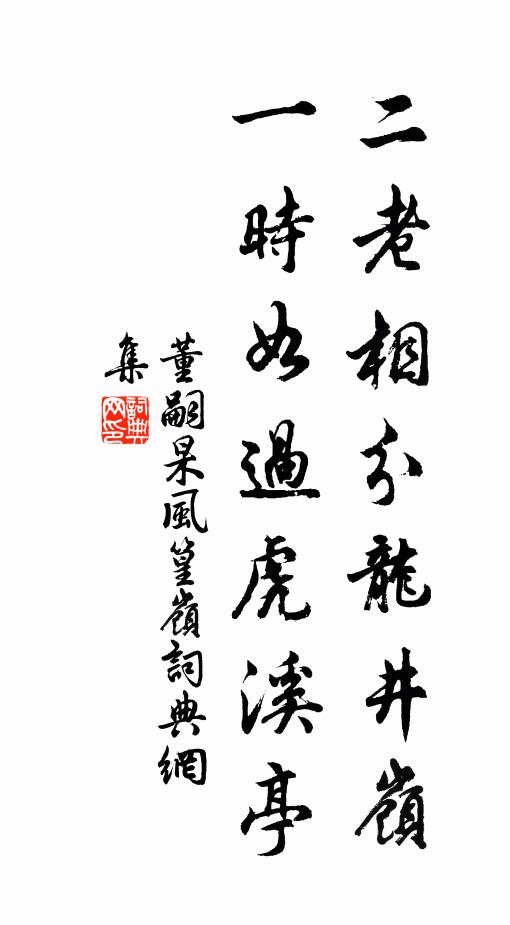 二老相分龍井嶺
一時如過虎溪亭
董嗣杲風篁嶺詞典網
集
詞典网印